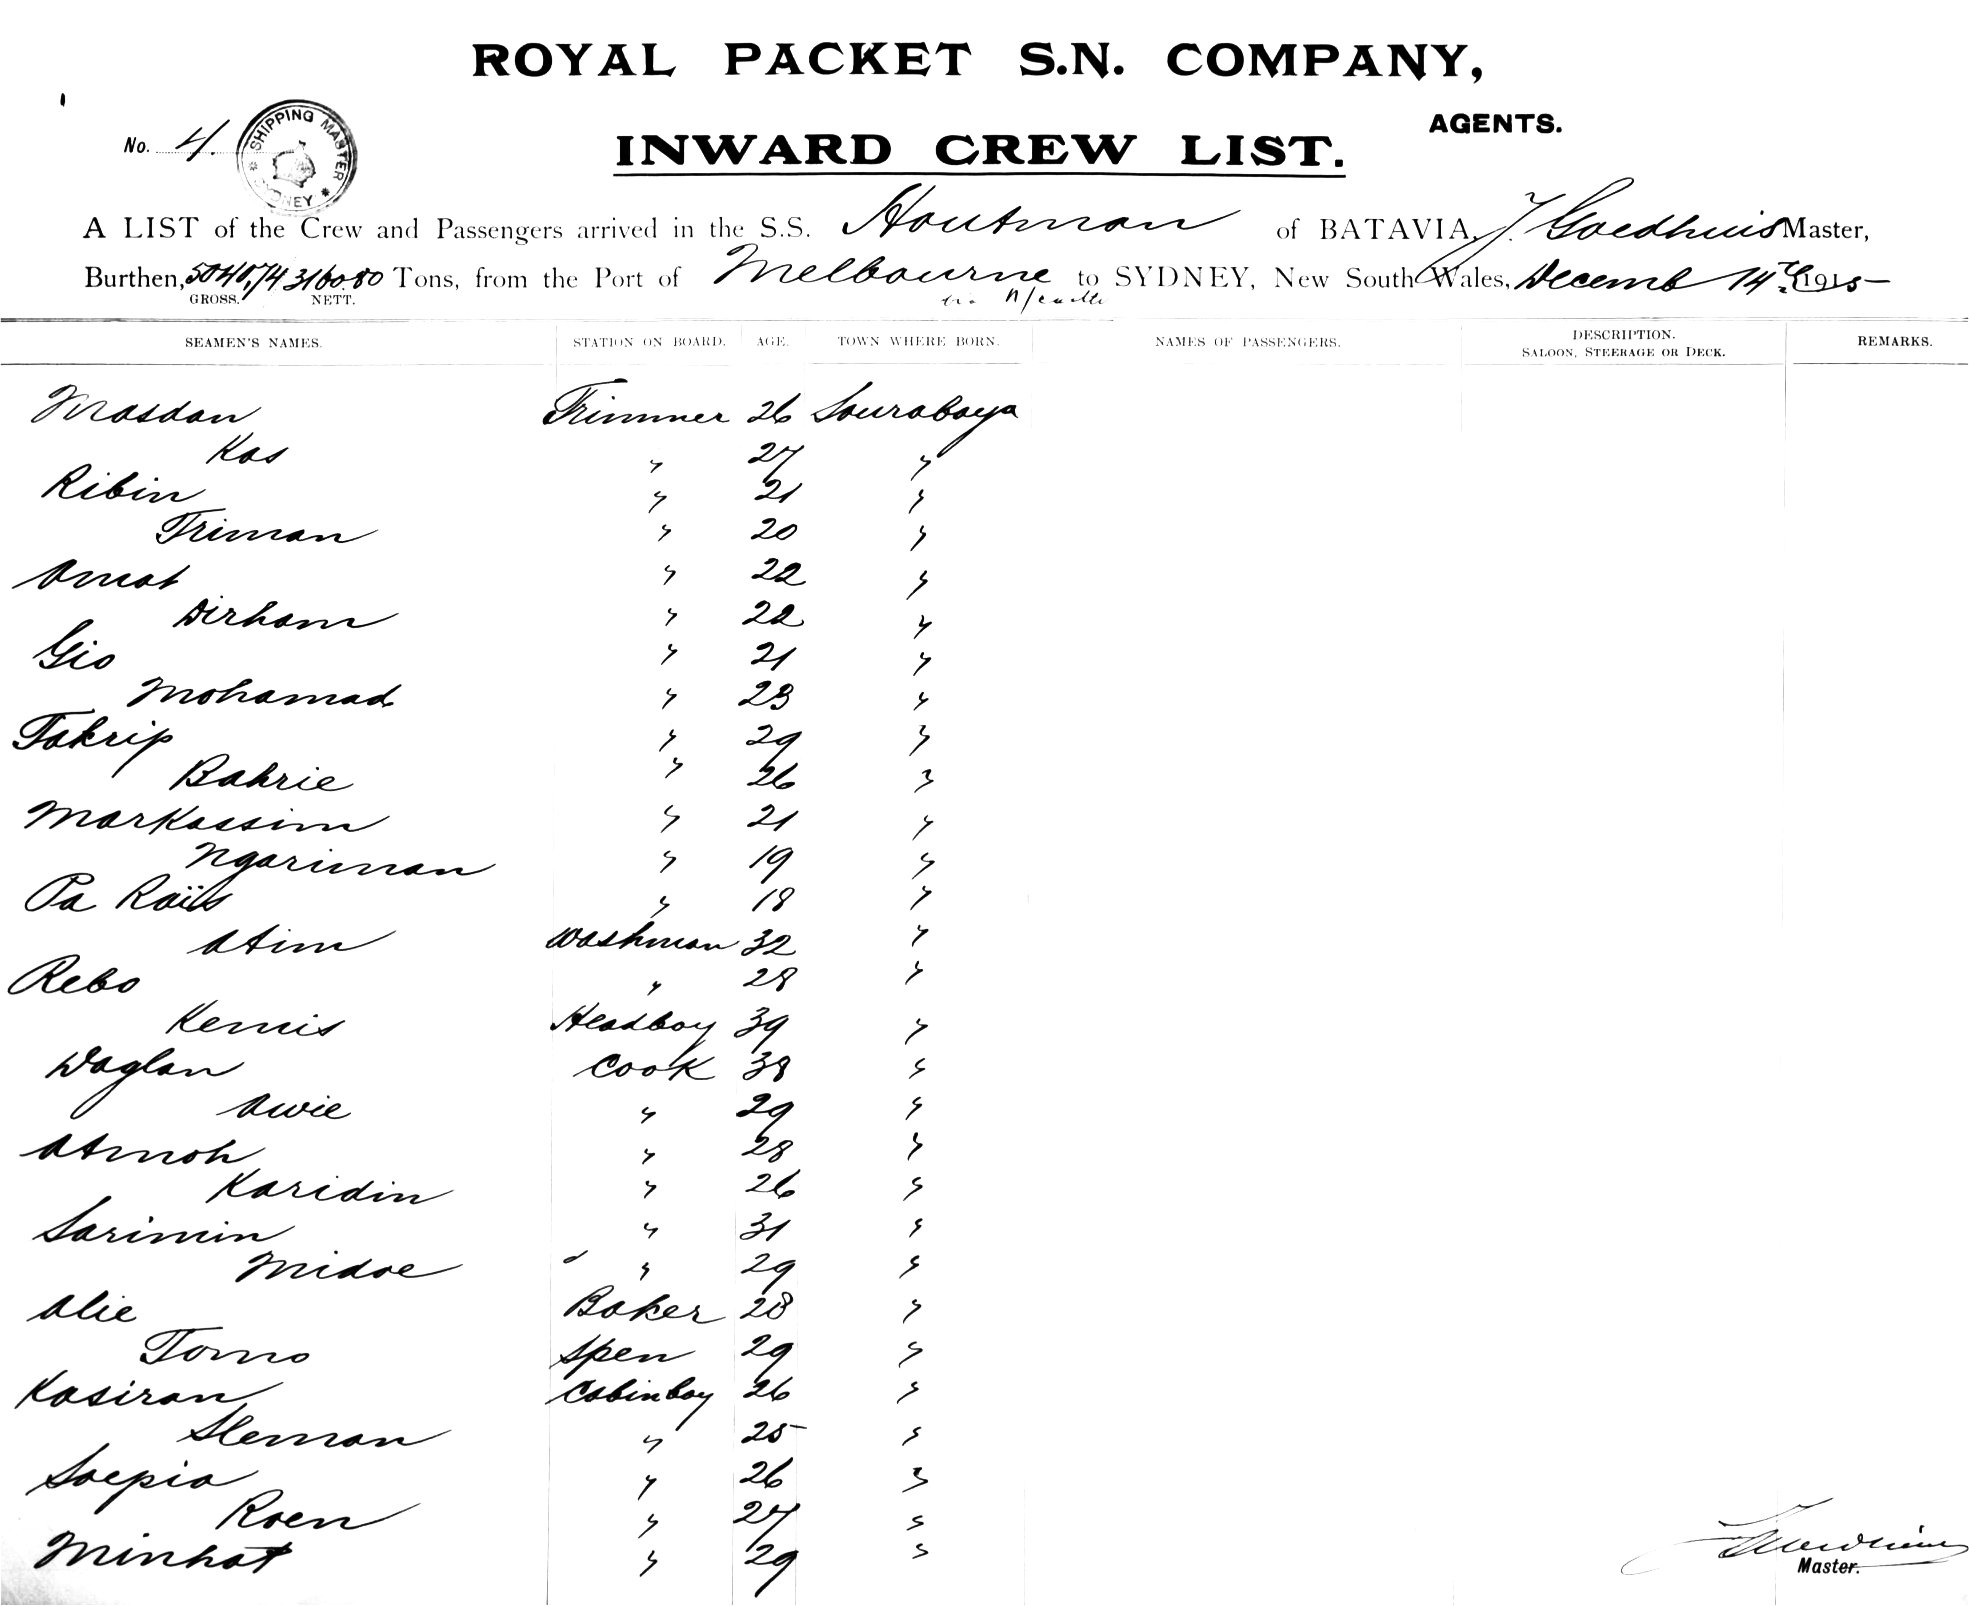 ROYAL PACKET S.N. COMPANY,
AGENTS.
No. 4.
SHIPPING MASTER SYDNEY
INWARD CREW LIST.
A LIST of the Crew and Passengers arrived in the S.S. Houtman of BATAVIA, J. Goedhuis Master,
Burthen, 5040,74 3160.80 Tons, from the Port of Melbourne to SYDNEY, New South Wales, Decemb 14th 1915
GROSS. NETT. via N/castle
SEAMEN'S NAMES. STATION ON BOARD. AGE. TOWN WHERE BORN. NAMES OF PASSENGERS. DESCRIPTION. SALOON, STEERAGE OR DECK. REMARKS.
Masdan Trimmer 26 Sourabaya
Kas " 27 "
Ribin " 21 "
Triman " 20 "
Amat " 22 "
Dirham " 22 "
Gio " 21 "
Mohamad " 23 "
Takrip " 29 "
Bahrie " 26 "
Markassim " 21 "
Ngariman " 19 "
Pa Raïs " 18 "
Atim Washman 32 "
Rebo " 28 "
Kemis Headboy 39 "
Waglan Cook 38 "
Awie " 29 "
Atmoh " 28 "
Karidin " 26 "
Sarimin " 31 "
Midoe " 29 "
Alie Baker 28 "
Tomo Spen 29 "
Kasiran Cabinboy 26 "
Sleman " 25 "
Soepia " 26 "
Roen " 27 "
Minhat " 29 "
J Goedhuis
Master.